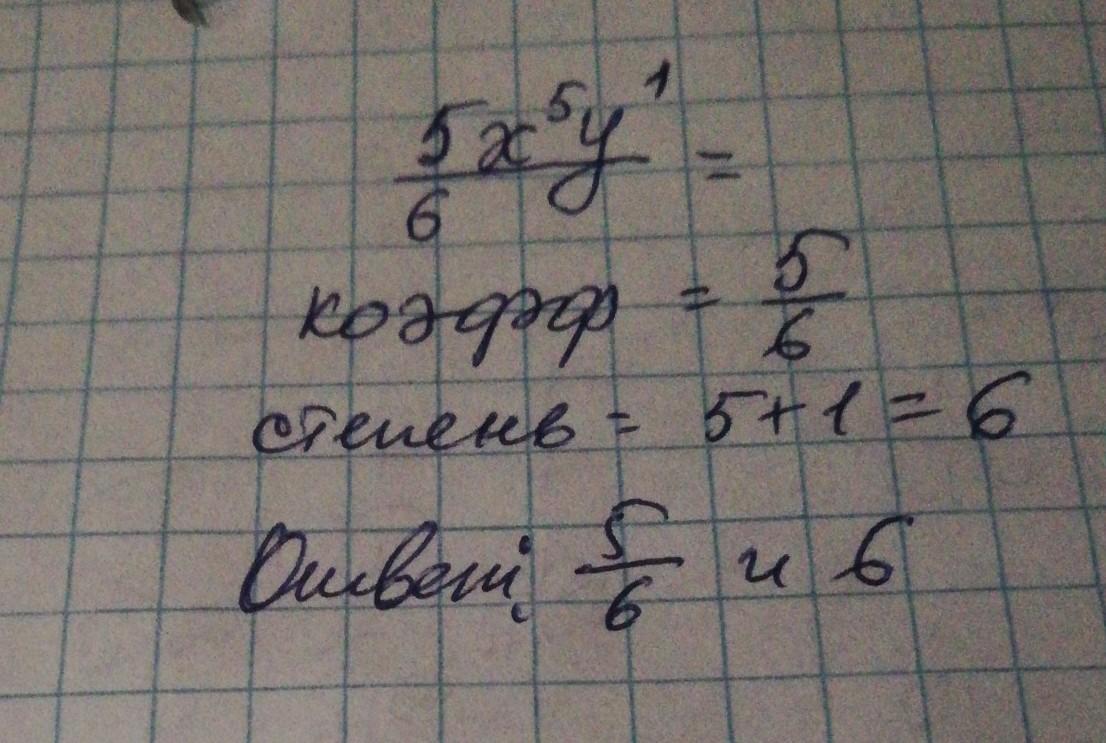 5x⁵y¹/6 =
коэфф = 5/6
степень = 5+1=6
Ответ: 5/6 и 6